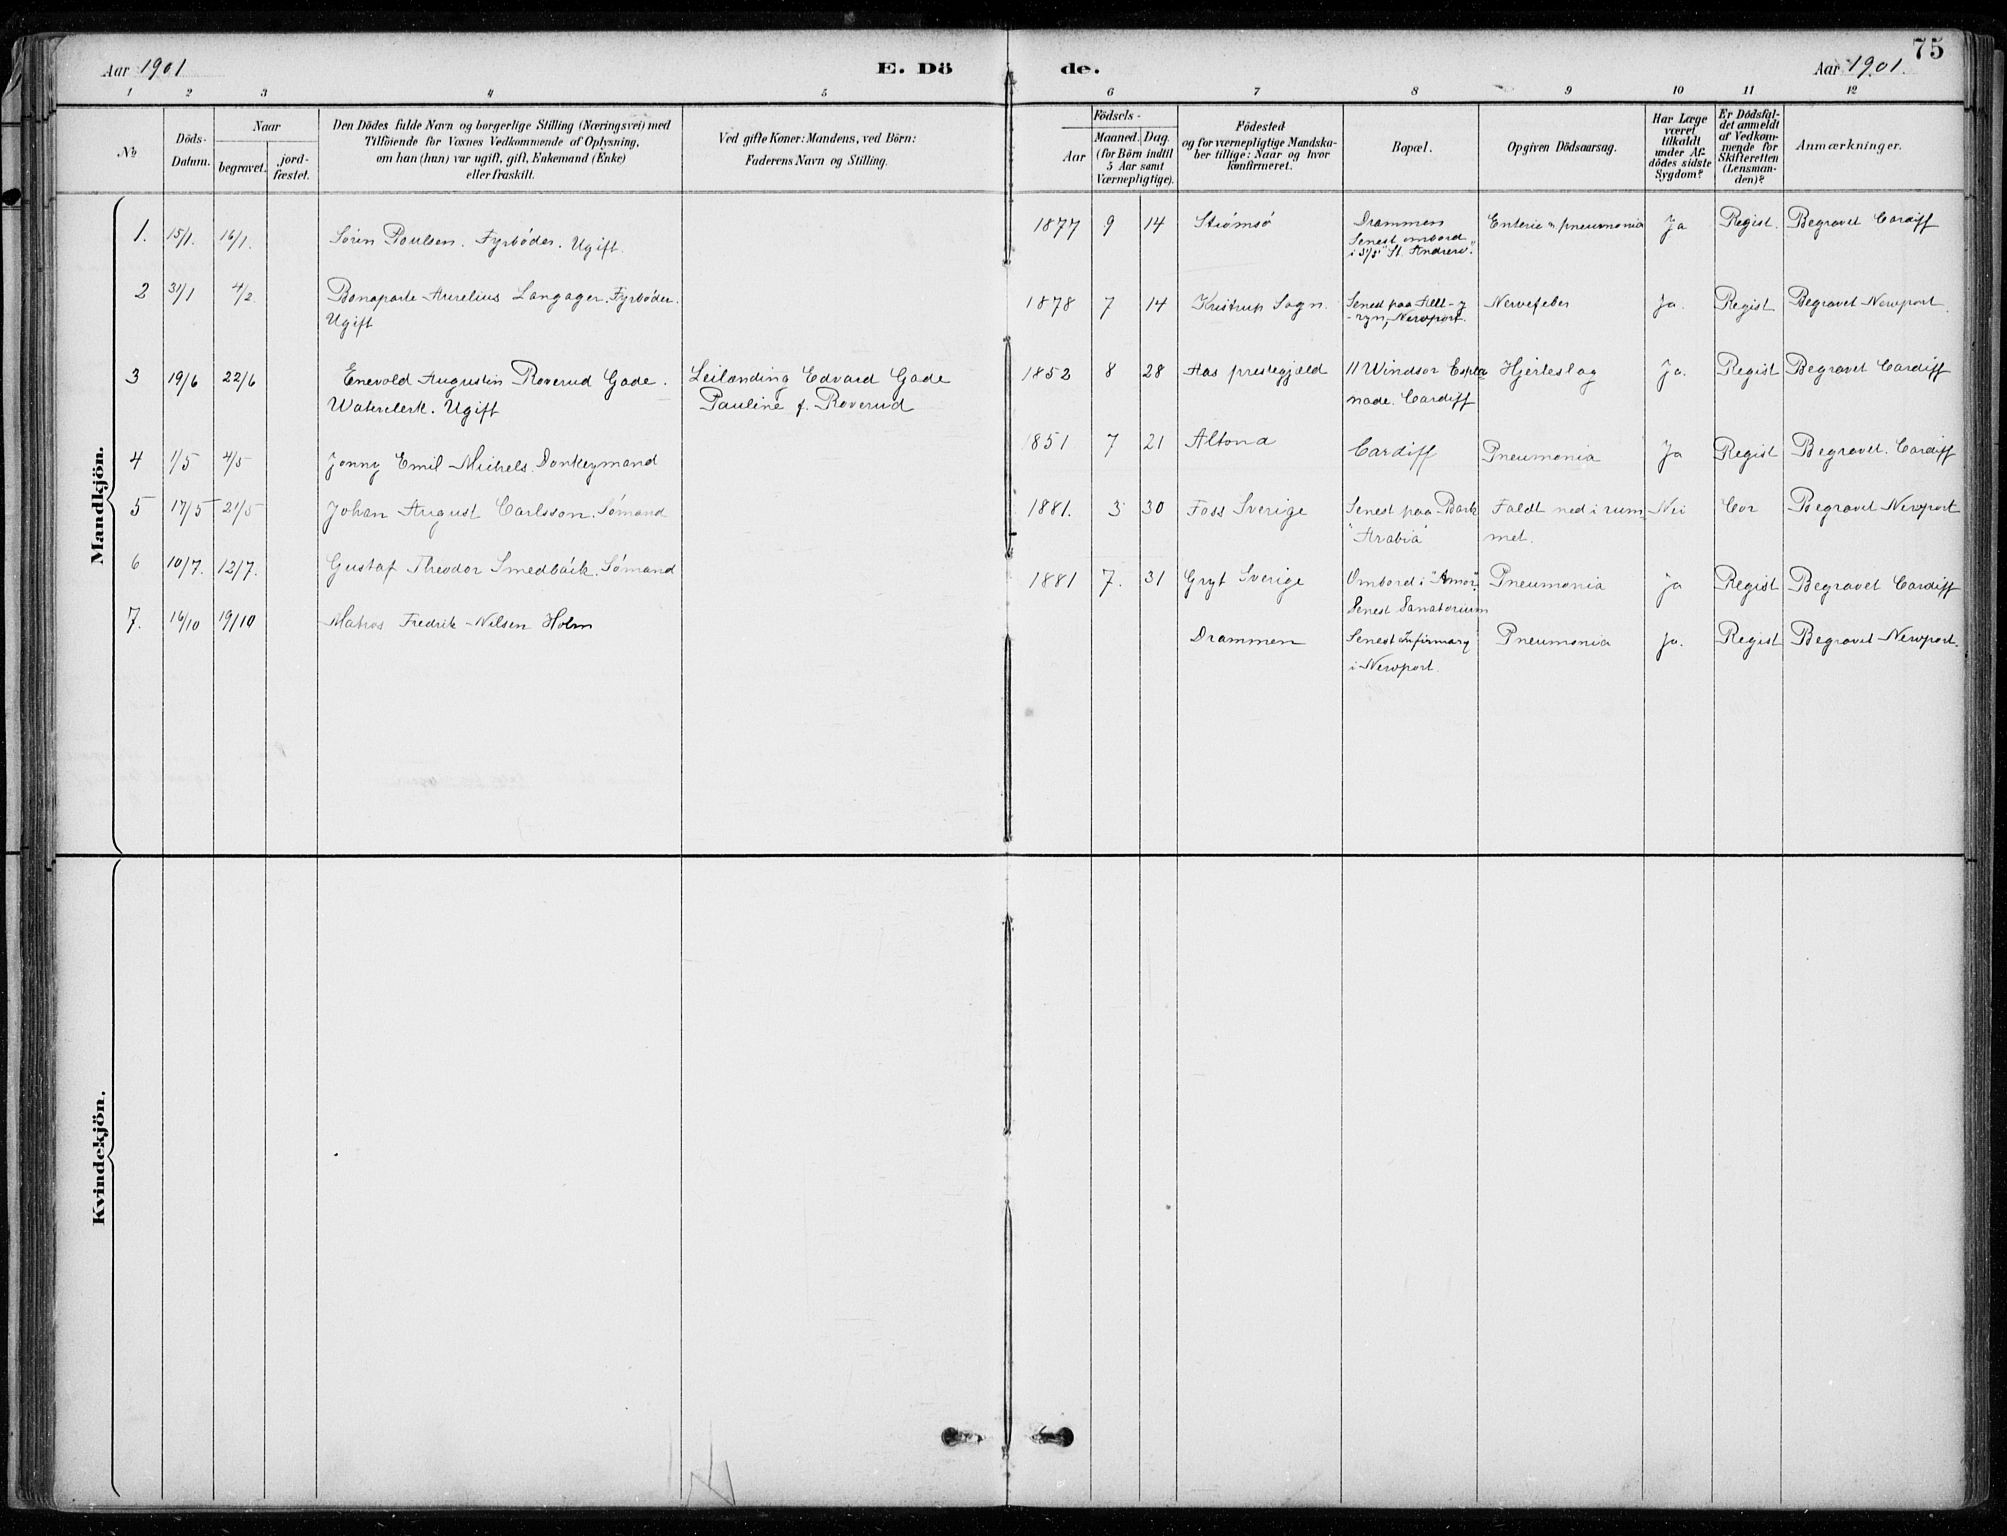 75
Aar 1901 E. Dö de. Aar 1901.
1 2 3 4 5 6 7 8 9 10 11 12
No.
Döds-Datum.
Naar
begravet.
jord-fæstet.
Den Dödes fulde Navn og borgerlige Stilling (Næringsvei) med
Tilföiende for Voxnes Vedkommende af Oplysning,
om han (hun) var ugift, gift, Enkemand (Enke)
eller fraskilt.
Ved gifte Koner: Mandens, ved Börn:
Faderens Navn og Stilling.
Födsels-
Aar
Maaned. Dag.
(for Börn indtil
5 Aar samt
Værnepligtige).
Födested
og for værnepligtige Mandska-
ber tillige: Naar og hvor
konfirmeret.
Bopæl.
Opgiven Dödsaarsag.
Har Læge
været
tilkaldt
under Af-
dödes sidste
Sygdom?
Er Dödsfal-
det anmeldt
af Vedkom-
mende for
Skifteretten
(Lensman-
den)?
Anmærkninger.
Mandkjön.
1. 15/1. 16/1. Sören Poulsen. Fyrbøder. Ugift. 1877 9 14 Strømsø Drammen Enteria & pneumonia Ja Regist. Begravet Cardiff
Senest ombord
i S/S "St. Andrew".
2 31/1 4/2 Bonaparte Aurelius Langager. Fyrbøder. 1878 7 14 Kristrup Sogn. Senest paa Allt-y Nervefeber Ja. Regist Begravet Newport.
Ugift -ryn, Newport.
3 19/6 22/6 Enevold Augustin Roverud Gade. Leilænding Edvard Gade 1852 8 28 Aas prestegjæld 11 Windsor Espla Hjerteslag Ja. Regist Begravet Cardiff
Waterclerk. Ugift Pauline f. Roverud nade. Cardiff
4 1/5 4/5 Jonny Emil Michels. Donkeymand 1851 7 21 Altona Cardiff Pneumonia Ja Regist Begravet. Cardiff
5 17/5 21/5 Johan August Carlsson. Sømand 1881. 3 30 Foss Sverige Senest paa Bark Faldt ned i rum- Nei Cor Begravet Newport
"Arabia" met.
6 10/7. 12/7. Gustaf Theodor Smedbäck. Sømand 1881 7. 31 Gryt Sverige Ombord i "Amor". Pneumonia Ja Regist Begravet Cardiff
Senest Sanatorium
7. 16/10 19/10 Matros Fredrik Nilsen Holm Drammen Senest Infirmary Pneumonia Ja. Regist Begravet Newport.
i Newport.
Kvindekjön.